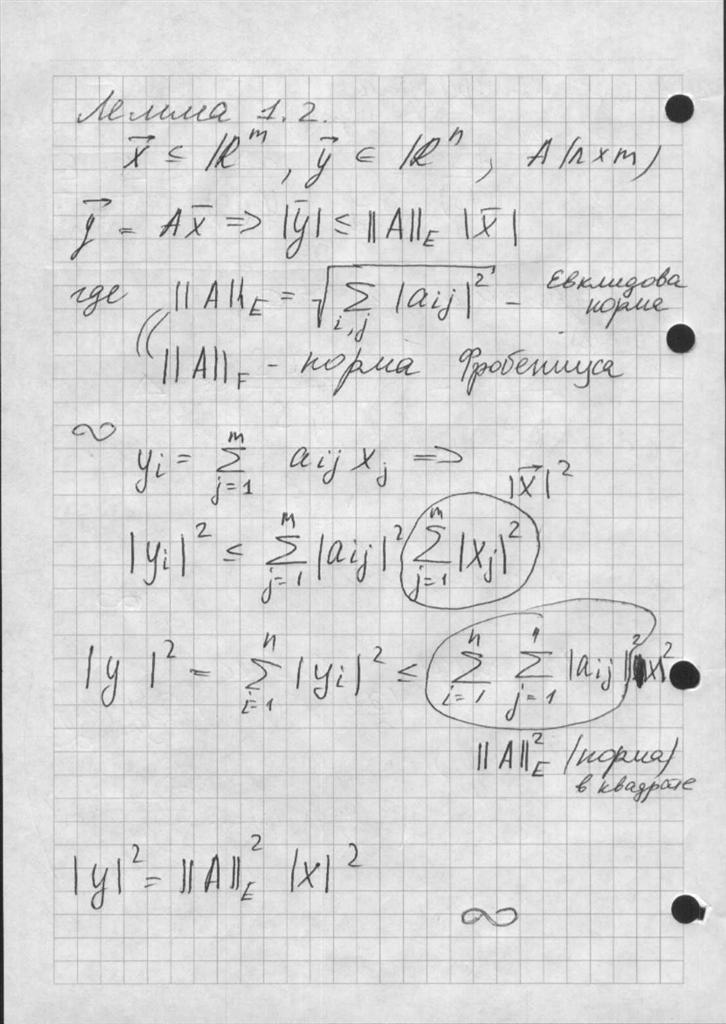 Лемма 1.2.
x⃗ ≤ ℝ^m, y⃗ ∈ ℝ^n, A(n×m)
y⃗ = Ax̄ => |ȳ| ≤ ||A||_E |x̄|
где ||A||_E = √(∑_{i,j} |aij|²) – Евклидова норма
||A||_F – норма Фробениуса
∞ yi = ∑_{j=1}^{m} aij xj =>
|x⃗|²
|yi|² ≤ ∑_{j=1}^{m} |aij|² ∑_{j=1}^{m} |xj|²
|y|² = ∑_{i=1}^{n} |yi|² ≤ ∑_{i=1}^{n} ∑_{j=1}^{n} |aij|² |x|²
||A||_E² (норма)
в квадрате
|y|² = ||A||_E² |x|²
∞